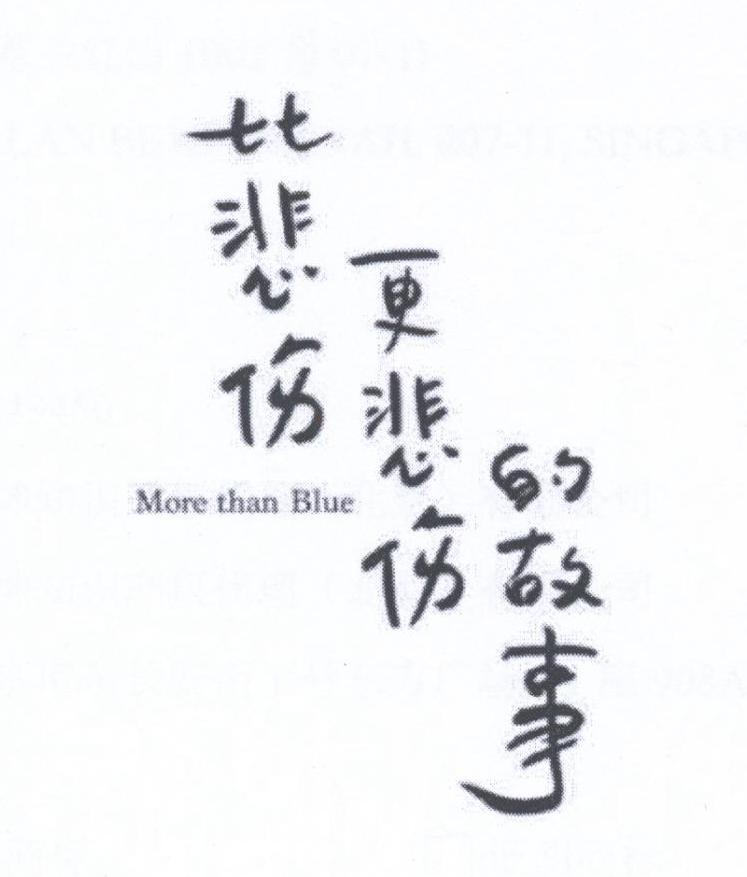 比悲伤
更悲伤
的故事
More than Blue